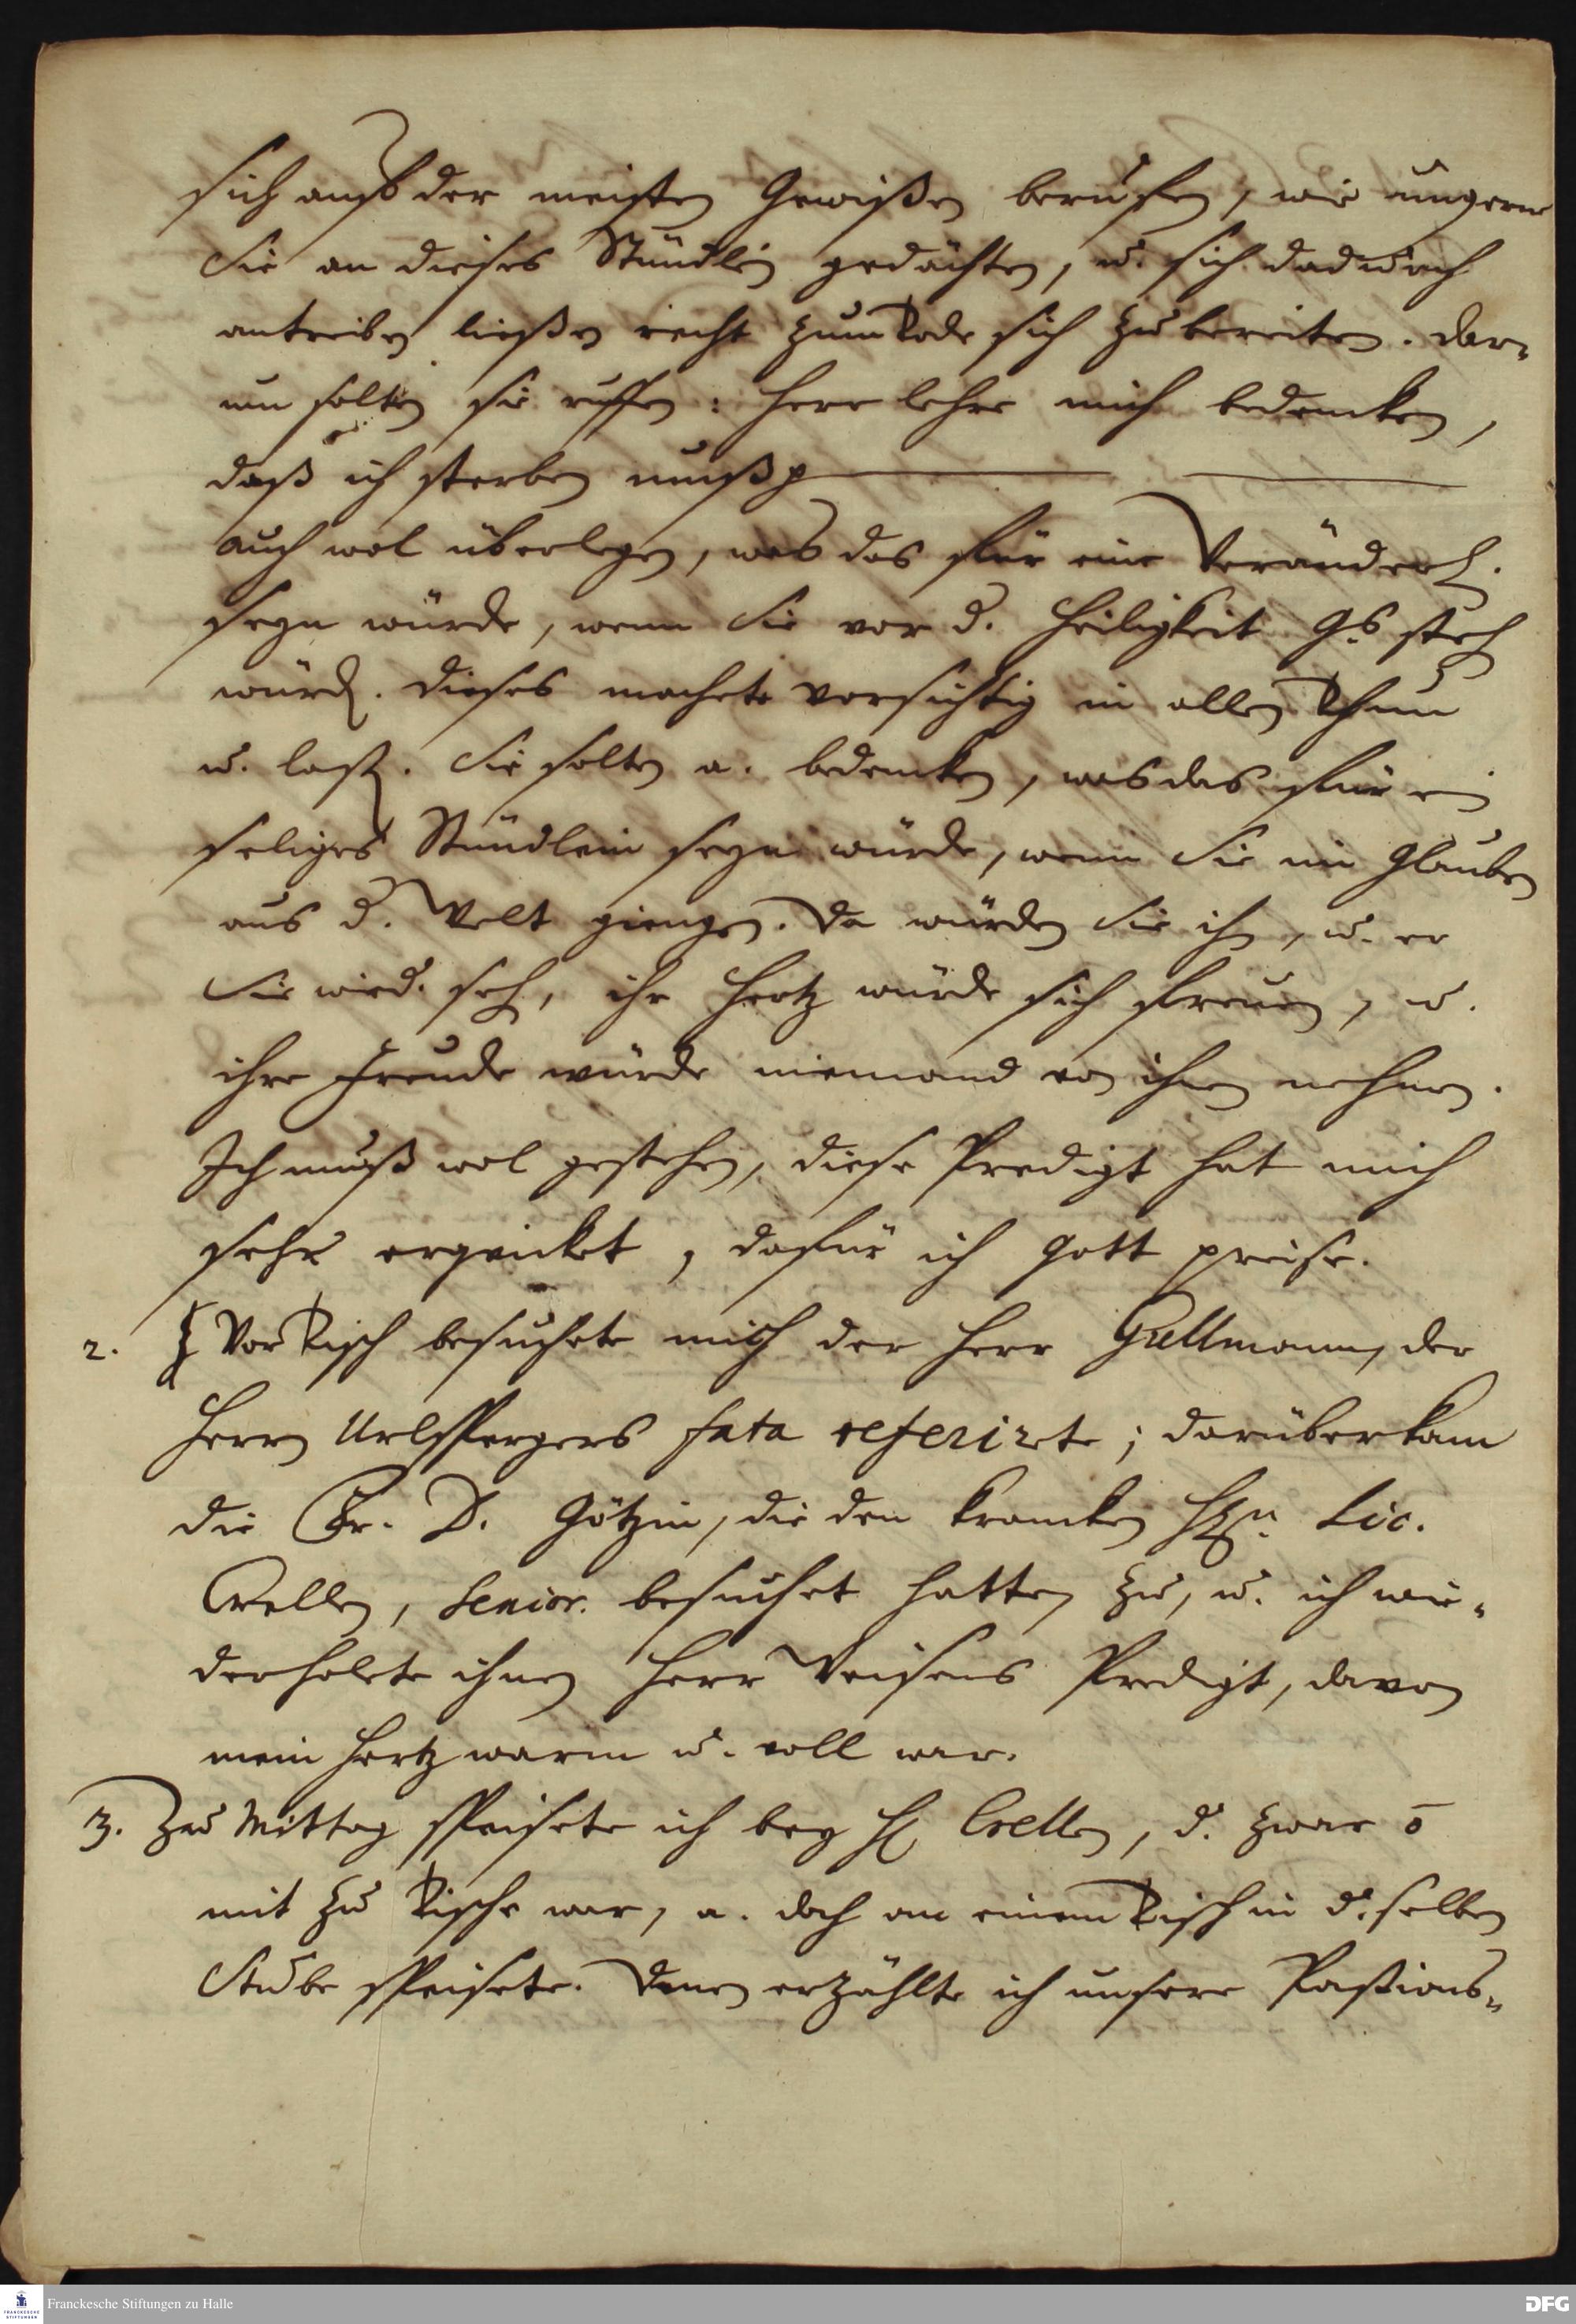 sich auf der meisten Gewißen beruffen, wie ungerne
Sie an dieses Stündlein gedächten, u. sich dadurch
antreiben ließen recht zum Tode sich zu bereiten. Dar-
um solten sie ruffen: Herr lehre mich bedencken,
daß ich sterben muß p
auch wol überlegen, was das für eine Veränder.
seyn würde, wenn Sie vor d. Heiligkeit Gs. steh
würd. Dieses machete vorsichtig in allen Thun
u. laß. Sie solten a. bedencken, was das für ein
seliges Stündlein seyn würde, wenn Sie im Glauben
aus d. Welt giengen. Da würden Sie ihn, u. er
Sie wied. seh, ihr Hertz würde sich freuen, u.
ihre Freude würde niemand von ihnen nehmen.
Ich muß wol gestehen, diese Predigt hat mich
sehr erqvicket, dafür ich Gott preise.
2. Vor Tisch besuchete mich der Herr Gullmann, der
Herrn Urlspergers fata referirete; darüber kam
die Fr. D. Götzin, die den krancken HEn. Lic.
Crellen, Senior. besuchet hatte, zu, u. ich wie-
derholete ihnen Herr Weisens Predigt, davon
mein Hertz warm u. voll war.
3. Zu Mittag speisete ich bey H. Crellen, d. zwar o
mit zu Tische war, a. doch an einem Tisch in d. selben
Stube speisete. Denen erzählte ich unsere Paßions-
Franckesche Stiftungen zu Halle
FRANCKESCHE STIFTUNGEN
DFG